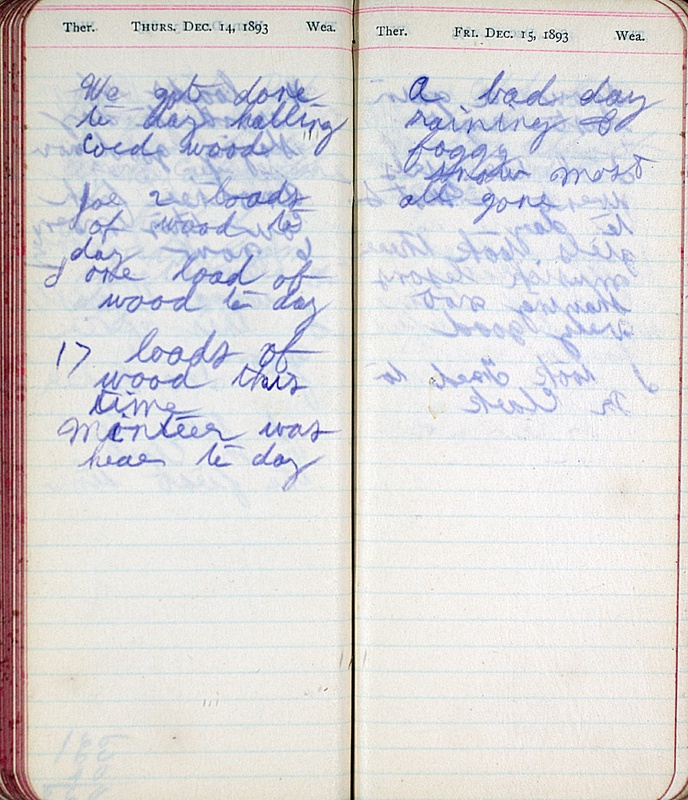 Ther. THURS. DEC. 14, 1893 Wea.
We got done
te day halling
Coed wood
Joe 2 loads
of wood te
day
I one load of
wood te day
17 loads of
wood this
time
Minteer was
hear te day
Ther. FRI. DEC. 15, 1893 Wea.
A bad day
raining &
foggy
snow most
all gone